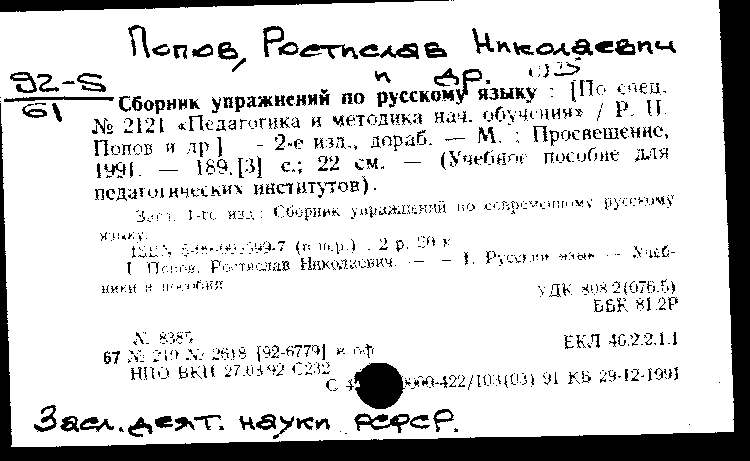 Попов, Ростислав Николаевич
и др.
92-5
61
Сборник упражнений по русскому языку : [По спец.
№ 2121 «Педагогика и методика нач. обучения» / Р. Н.
Попов и др.] — 2-е изд., дораб. — М. : Просвещение,
1991. — 189,[3] с.; 22 см. — (Учебное пособие для
педагогических институтов).
Загл. 1-го изд.: Сборник упражнений по современному русскому
языку.
ISBN (в пер.) : 2 р. 20 к.
1. Попов, Ростислав Николаевич. — — 1. Русский язык — Учеб-
ники и пособия
УДК 808.2(076.5)
ББК 81.2Р
№ 8385
67 № 219 № 2618 [92-6779] в оф
ЕКЛ 46.2.2.1.1
НПО ВКП 27.03.92 С232
С 000-422/103(03) 91 КБ 29-12-1991
Засл. деят. науки РСФСР.